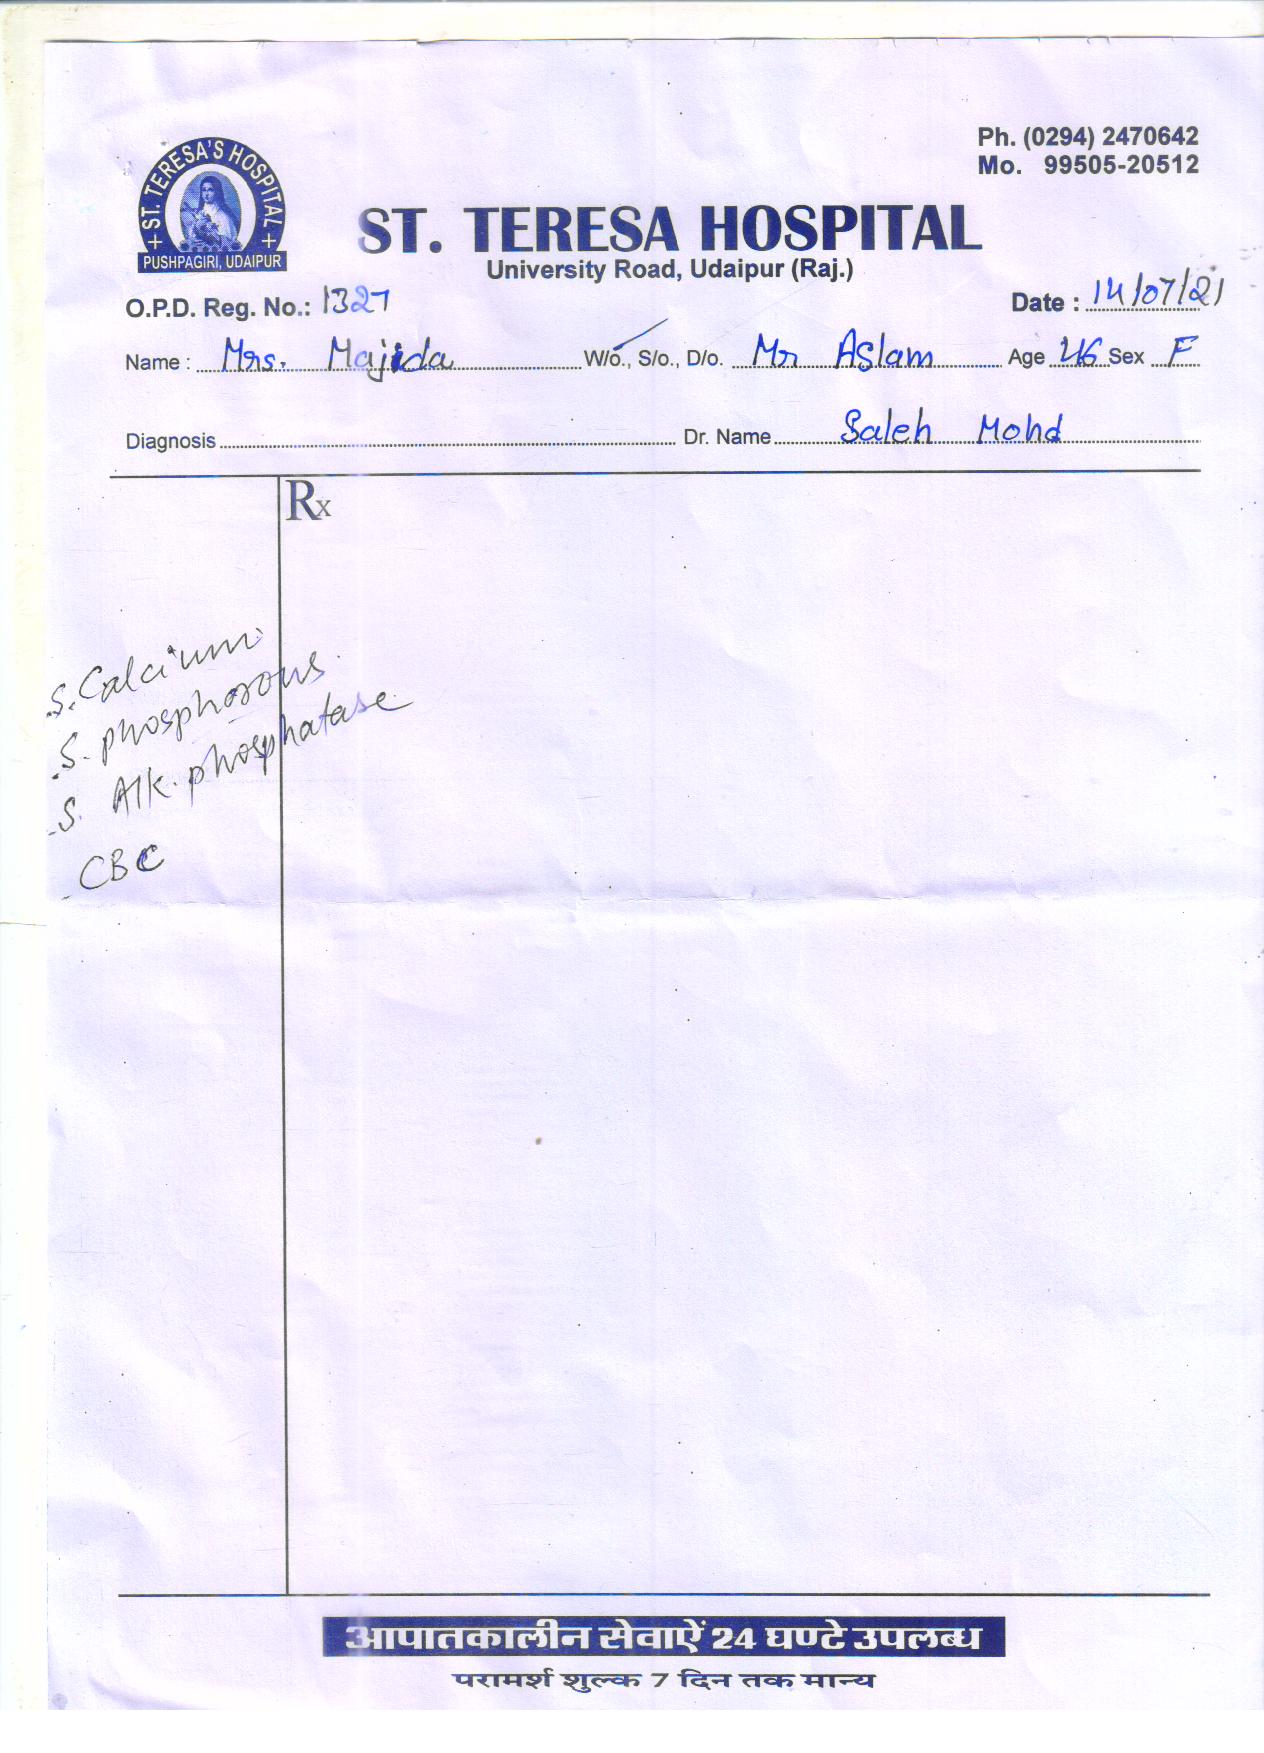 Ph. (0294) 2470642
Mo. 99505-20512
ST. TERESA'S HOSPITAL
PUSHPAGIRI, UDAIPUR
ST. TERESA HOSPITAL
University Road, Udaipur (Raj.)
O.P.D. Reg. No.: 1327 Date : 14/07/21
Name : Mrs. Majida W/o., S/o., D/o. Mr Aslam Age 46 Sex F
Diagnosis Dr. Name Saleh Mohd
Rx
S. Calcium
S. phosphorous
S. Alk. phosphatase
CBC
आपातकालीन सेवाऐं 24 घण्टे उपलब्ध
परामर्श शुल्क 7 दिन तक मान्य